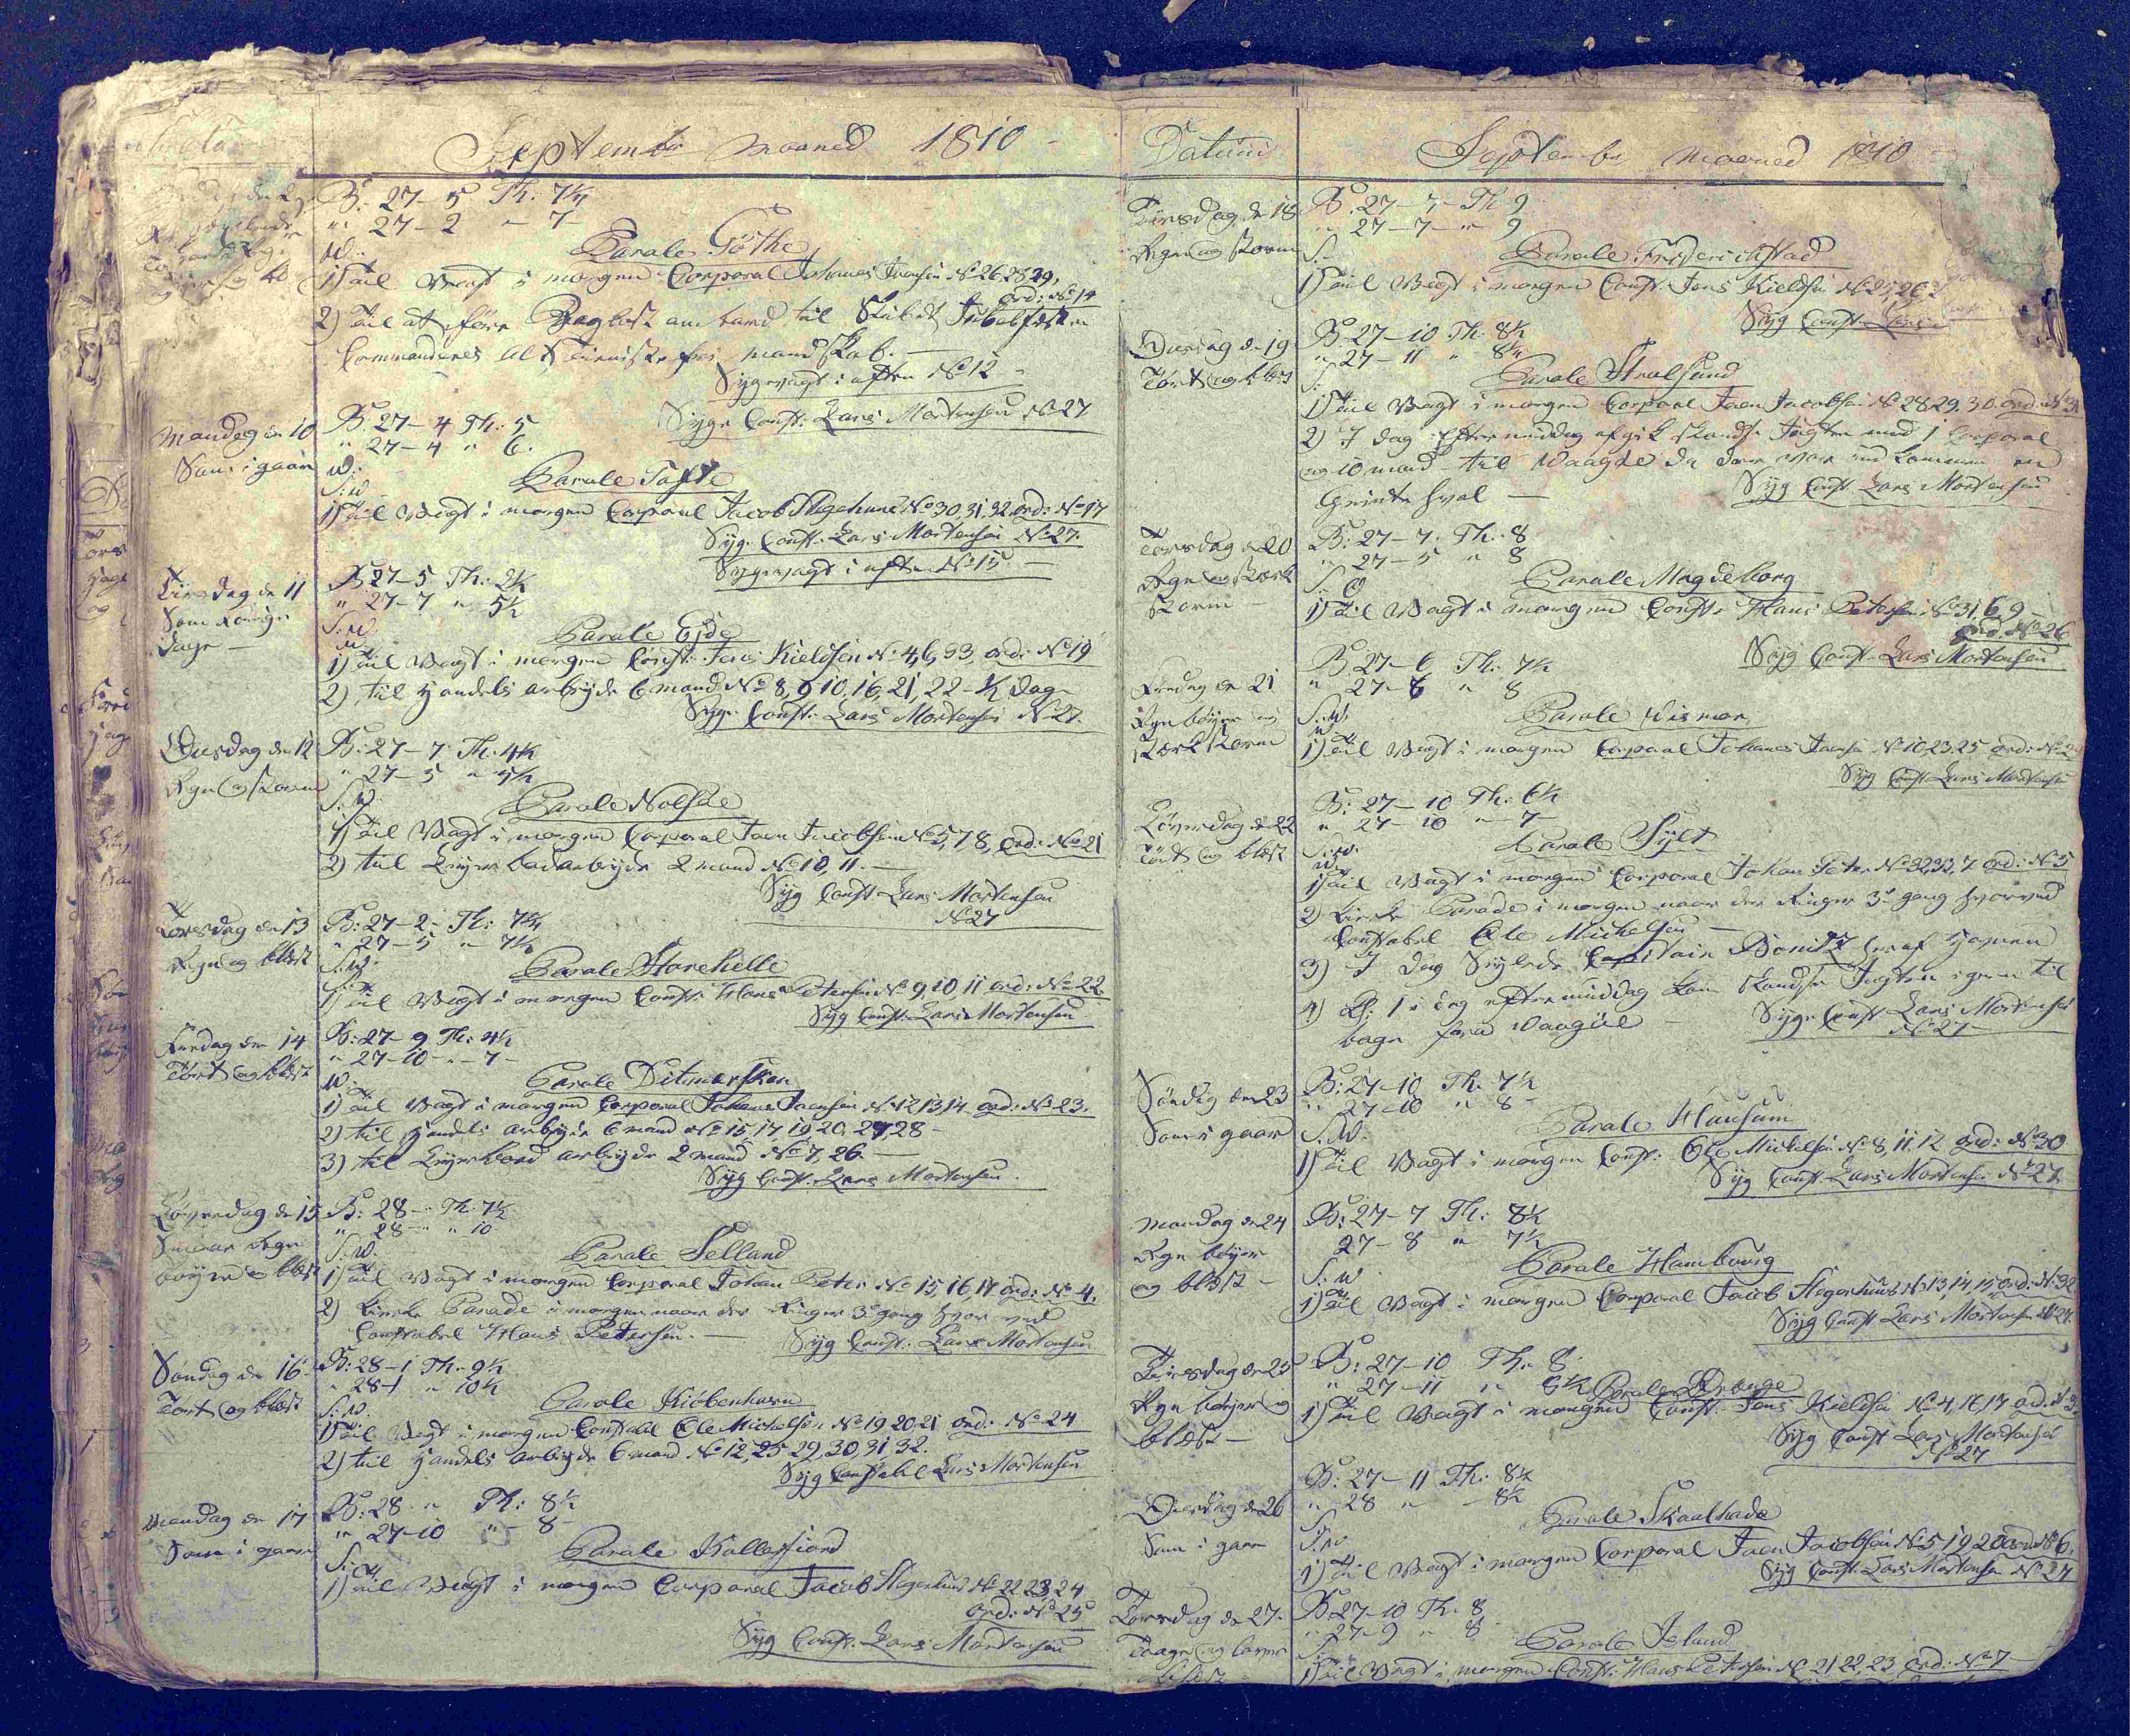 September Maaned 1810
B: 27-5 Th. 7½
" 27-2 " 7-
W:
Parole Göthe
1) Til Vagt i morgen Corporal Johanes Joensen No 26 28 29,
ord: No 14
2) Til at före Baglast om bord til Skibet
Commanderes alt tienistefri mandskab. —
Sygevagt i aften No 12 -
Syge Const: Lars Mortensen No 27
Mandag den 10
Som i gaar
B: 27-4 Th: 5
" 27-4 " 6.
W:
S:W
Parole Tofte
1) Til Vagt i morgen Corporal Jacob Hegehuus No 30, 31, 32. ord: No 17
Syge Const: Lars Mortensen No 27.
Sygevagt i aften No 15 —
Tirsdag den 11
Som forrige
dage —
B: 27-5 Th: 2½
" 27-7 " 5½
S:W.
W.
Parole Ejde
1) Til Vagt i morgen Const: Jens Kieldsen No 4, 6, 33, ord: No 19
2) til Handels arbejde 6 mand No 8, 9 10. 16, 21, 22 - ½ Dag -
Syge Const: Lars Mortensen No 27.
Onsdag den 12
Regn og Storm
B: 27-7 Th: 4½
" 27-5 " 5½
S:W.
Parole Nolsöe
1) Til Vagt i morgen Corporal Joen Jacobsen No 5, 7 8, ord: No 21
2) til arbejde 2 mand No 10, 11. —
Syg Const: Lars Mortensen
No 27
Torsdag den 13
Regn og blæst
B: 27-2 - Th: 7¼
" 27-5 " 7½
S:W.
Parole Storehelle
1) Til Vagt i morgen Const: Hans Petersen No 9, 10, 11 ord: No 22
Syg Const: Lars Mortensen
Fredag den 14
Tört og blæst
B: 27-9 Th: 4½
" 27-10 - " - 7-
W:
Parole Ditmarsken
1) Til Vagt i morgen Corporal Johanes Joensen No 12 13, 14 ord: No 23.
2) til Handels arbejde 6 mand No 15, 17, 19, 20, 27, 28 -
3) til arbejde 2 mand No 7, 26. —
Syg Const: Lars Mortensen.
Löverdag den 15
Smaae Regn
böyer og blæst
B: 28 - " Th: 7½
" 28 - " " 10
S:W.
Parole Selland
1) Til Vagt i morgen Corporal Johan Peter No 15, 16, 17 ord: No 4.
2) Kirke Parade i morgen naar der Ringes 3de gang hvor ved
Constabel Hans Petersen. —
Syg Const: Lars Mortensen
Söndag den 16
Tört og blæst
B: 28-1 Th: 9½
" 28-1 " 10½
S:W.
Parole Kiöbenhavn
1) Til Vagt i morgen Constabel Ole Michelsen No 19 20 21 ord: No 24
2) til Handels arbejde 6 mand No 12, 25 29, 30, 31 32.
Syg Constabel Lars Mortensen
Mandag den 17
Som i gaar
B: 28 - " Th: 8½
" 27-10 " - 8 -
S:W
Parole Kollefiord
1) Til Vagt i morgen Corporal Jacob Hegehuus No 22 23, 24
ord: No 25
Syg Const: Lars Mortensen
Datum
September Maaned 1810
Tirsdag den 18
Regn og storm
B: 27-7 - Th 9
" 27-7 - " 9
S:
Parole Fredericstad
1) Til Vagt i morgen Const: Jens Kieldsen No 25, 26,
Syg Const: Lars
Onsdag den 19
Tört og blæst
B: 27-10 Th: 8½
" 27-11 " 8½
S:
Parole Stralsund
1) Til Vagt i morgen Corporal Joen Jacobsen No 28 29. 30. ord:
2) I dag Eftermiddag afgik Skandse Jagten med 1 Corporal
og 10 mand til Waagöe da der var ind kommen en
Grinde hval —
Syg Const: Lars Mortensen
Torsdag den 20
Regn og stærk
Storm —
B: 27-7 - Th: 8
" 27-5 " 8
S: O
Parole Magdeborg
1) Til Vagt i morgen Const: Hans Petersen No 31 6, 9 -
ord: No 26
Syg Const: Lars Mortensen
Fredag den 21
Regn böyer og
stærk storm
B: 27-6 Th: 7½
" 27-6 " 8
S:W.
W
Parole Wismar
1) Til Vagt i morgen Corporal Johanes Joensen No 10, 23. 25 ord: No
Syg Const: Lars Mortensen
Löverdag den 22
Tört og blæst
B: 27-10 Th: 6½
" 27-10 " 7 -
S:W.
W.
Parole Sylt
1) Til Vagt i morgen Corporal Johan Peter No 32, 33, 7 ord: No 5
2) Kirke Parade i morgen naar der Ringes 3de gang hvorved
Constabel Ole Michelsen —
3) I Dag Seylede Capitain Bonitz her af Havnen
4) Kl: 1 i dag eftermiddag kom Skandse Jagten igien til
bage fra Waagöe —
Syge Const: Lars Mortensen
No 27 -
Söndag den 23
Som i gaar
B: 27-10 Th: 7½
" 27-10 " 8 -
S:W.
Parole Housum
1) Til Vagt i morgen Const: Ole Michelsen No 8, 11. 12 ord: No 30
Syg Const: Lars Mortensen No 27.
Mandag den 24
Regn böyer
og blæst —
B: 27-7 Th: 8½
27-8 " 7½
S:W
Parole Hambourg
1) Til Vagt i morgen Corporal Jacob Hegehuus No 13, 14, 15 ord: No 32
Syg Const: Lars Mortensen No 27.
Tirsdag den 25
Regn böyer og
blæst —
B: 27-10 Th: 8
" 27-11 " 6½
1) Til Vagt i morgen Const: Jens Kieldsen No 4, 16, 17 ord: No
Syg Const: Lars Mortensen
No 27
Onsdag den 26
Som i gaar
B: 27-11 Th: 8½
" 28 " - 8½
S:
S:W
1) Til Vagt i morgen Corporal Joen Jacobsen No 5 19 20 ord: No 6.
Syg Const: Lars Mortensen No 27
Torsdag den 27.
Taage og
blæst
B: 27-10 Th: 8
" 27-9 " 8
Parole Island
1) Til Vagt i morgen Const: Hans Petersen No 21, 22, 23 ord: No 7 -